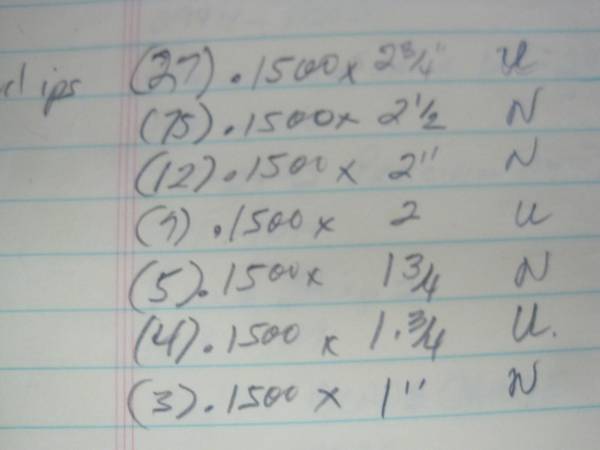 (27) .1500 x 2 3/4" U
(75) .1500 x 2 1/2 N
(12) .1500 x 2" N
(7) .1500 x 2 U
(5) .1500 x 1 3/4 N
(4) .1500 x 1.3/4 U.
(3) .1500 x 1" N